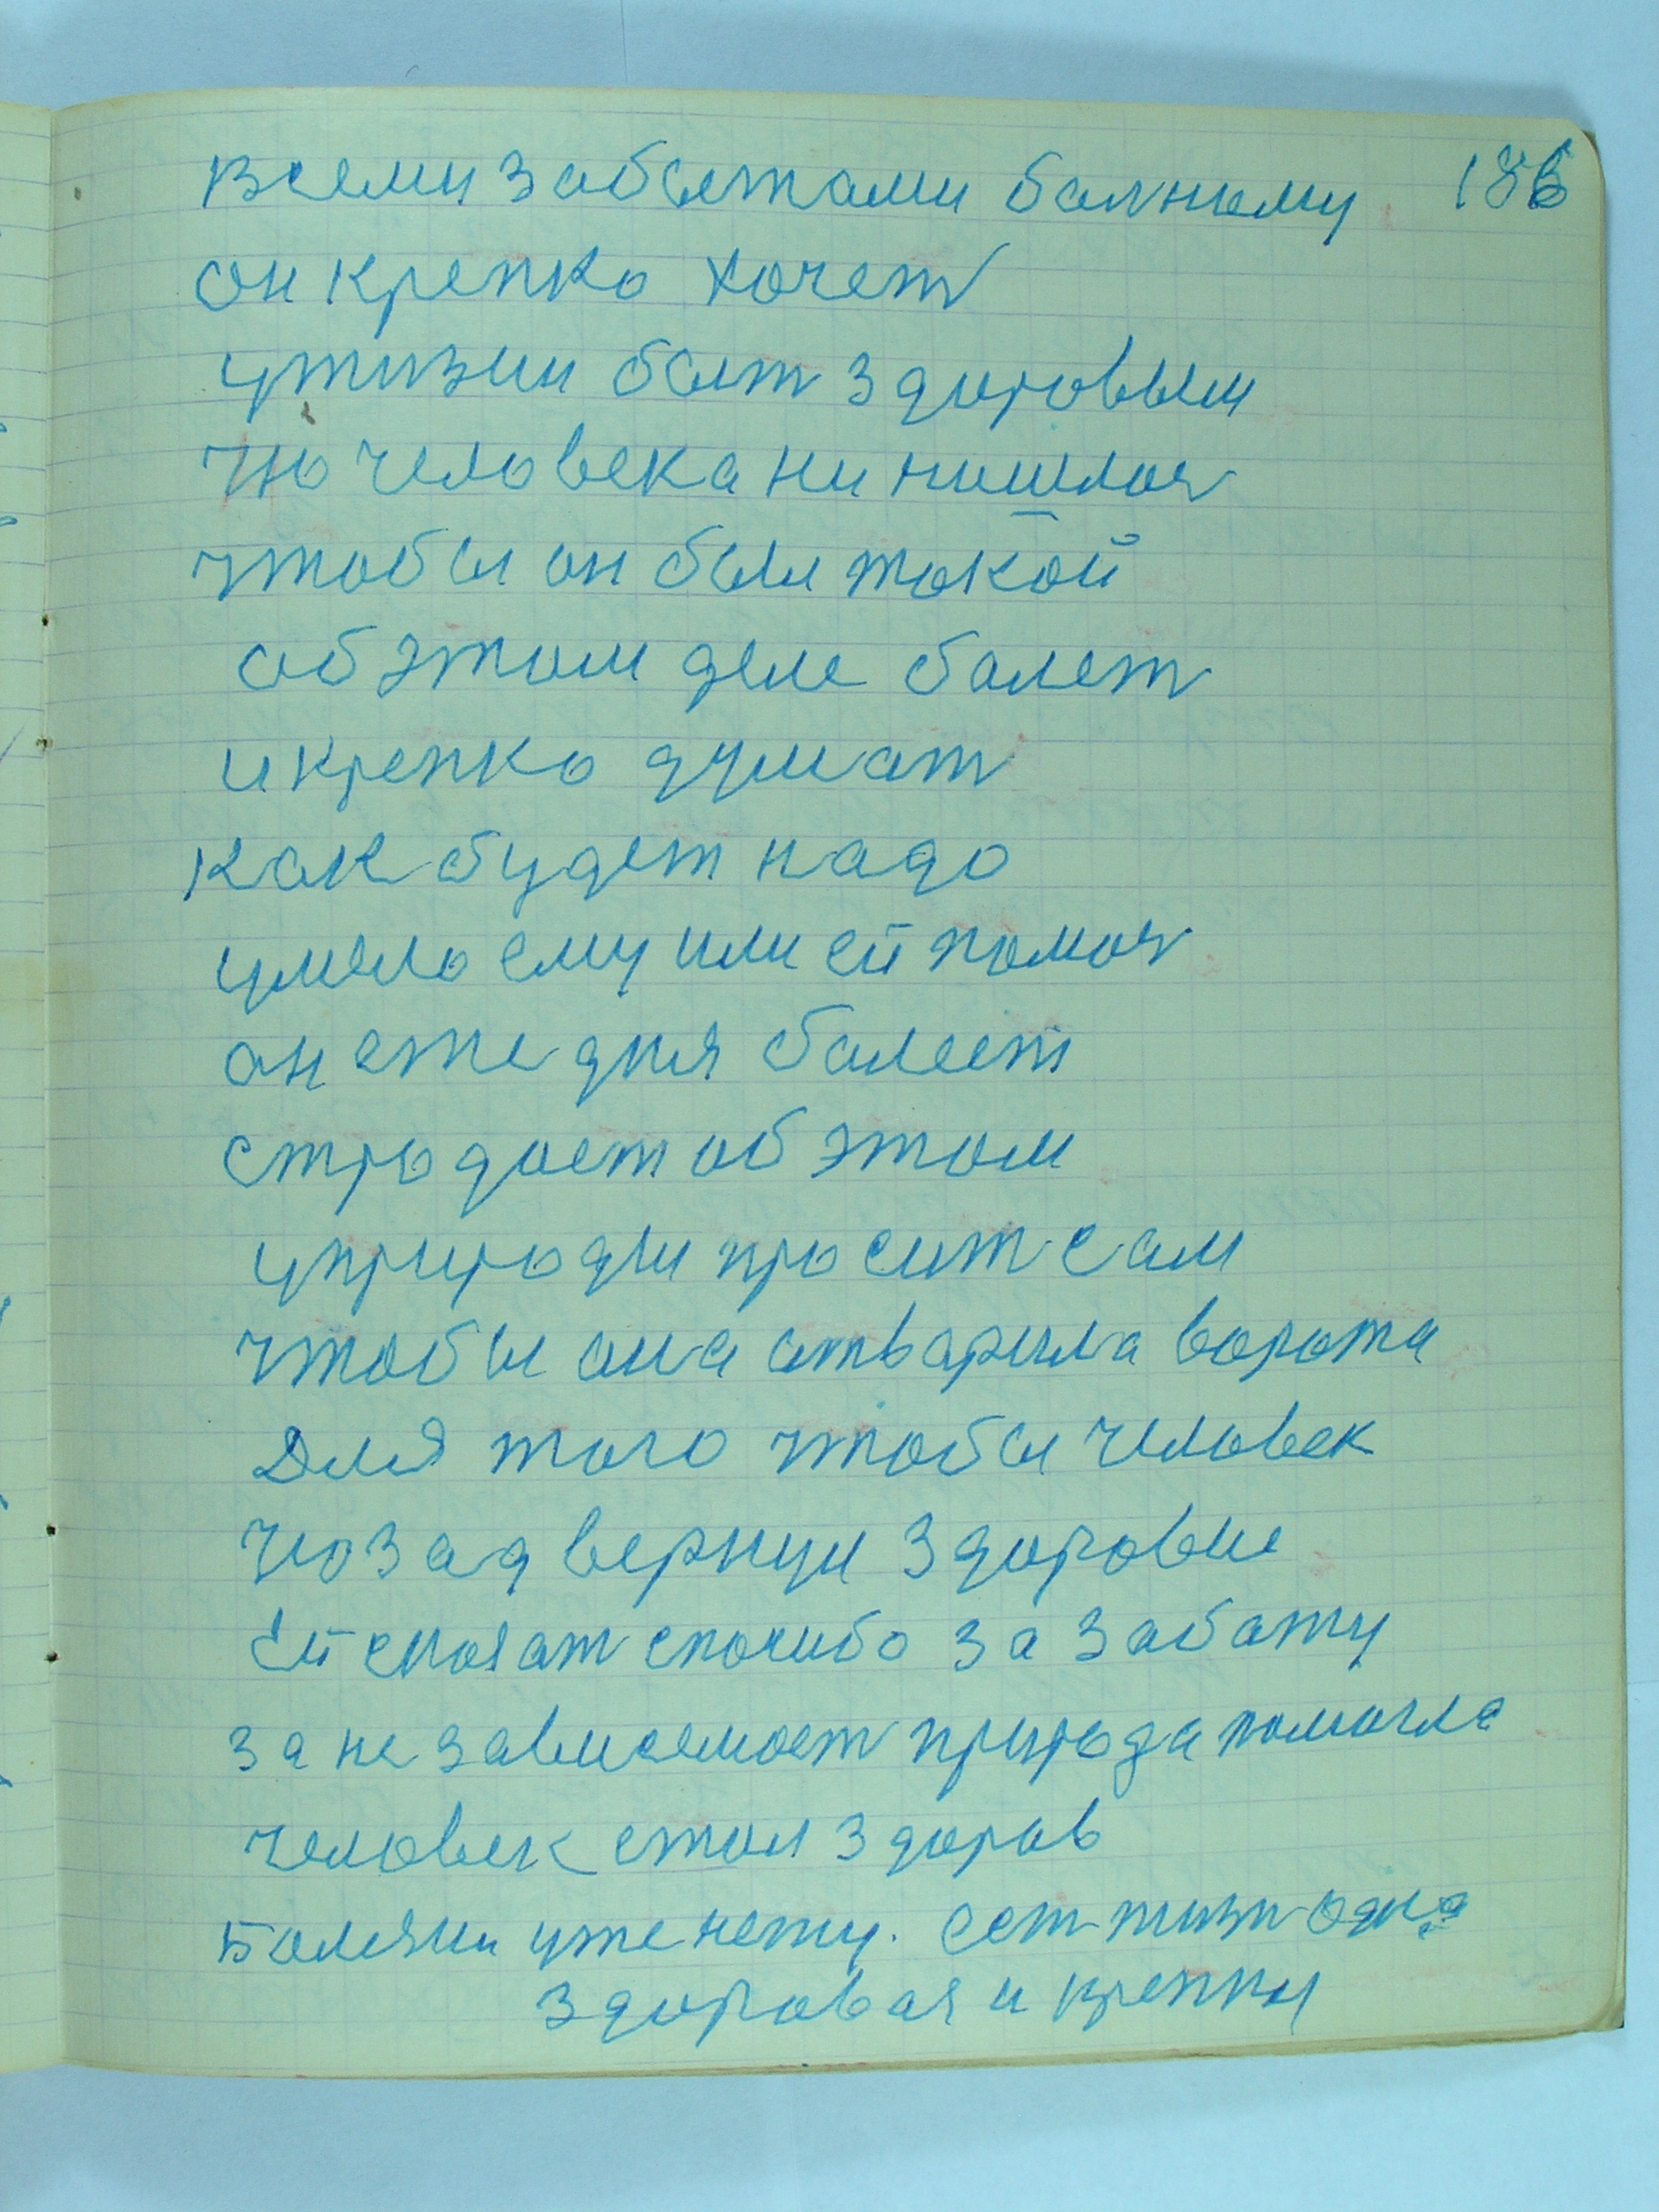 всеми забытами болному 186
он крепко хочет
у жизни быт здоровым
но человека ни нишлос
чтобы он был такой
об этом деле болет
и крепко думат
как будет надо
умело ему или ей помоч
он еже дня болеет
страдает об этом
у природы просит сам
чтобы она отварила ворота
Для того чтобы человек
нозад вернул здоровие
Ей скожат спосибо за заботу
за не зависемост природа помогла
человек стал здоров
Болезни уже нету. ест жизн одна
здоровая и крепка